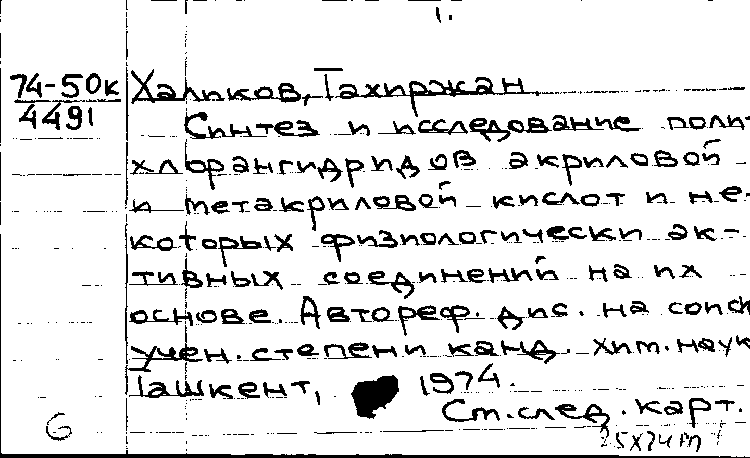 1.
74-50к Халиков, Тахиржан.
4491
Синтез и исследование поли-
хлорангидридов акриловой
и метакриловой кислот и не-
которых физиологически ак-
тивных соединений на их
основе. Автореф. дис. на соиск
учен. степени канд. хим. наук
Ташкент, 1974.
См. след. карт.
6